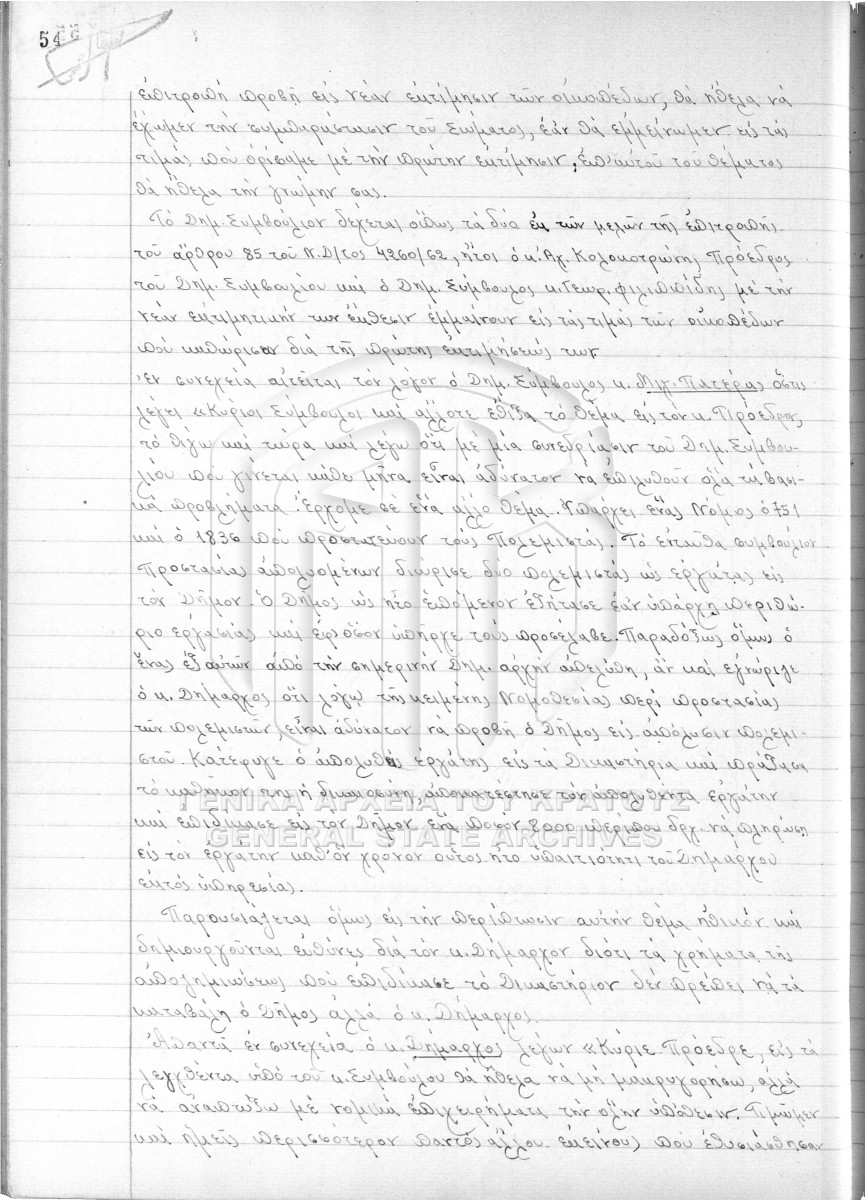 54
ἐπιτροπή προβῆ εἰς νέαν ἐκτίμησιν τῶν οἰκοπέδων, θά ἤθελα νά
ἔχωμεν τήν συμπαράστασιν τοῦ Σώματος, ἐάν θά ἐμμείνωμεν εἰς τάς
τιμάς πού ὁρίσαμε μέ τήν πρώτην ἐκτίμησιν, ἐπ' αὐτοῦ τοῦ θέματος
θά ἤθελα τήν γνώμην σας.
Τό Δημ. Συμβούλιον δέχεται ὅπως τά δύο ἐκ τῶν μελῶν τῆς ἐπιτροπῆς
τοῦ ἄρθρου 85 τοῦ Ν.Δ/τος 4260/62, ἤτοι ὁ κ. Ἀγ. Κολοκοτρώνης Πρόεδρος
τοῦ Δημ. Συμβουλίου καί ὁ Δημ. Σύμβουλος κ. Γεωρ. Φιλιππίδης μέ τήν
νέαν ἐκτιμητικήν των ἔκθεσιν ἐμμείνουν εἰς τάς τιμάς τῶν οἰκοπέδων
πού καθώρισαν διά τῆς πρώτης ἐκτιμήσεώς των
Ἐν συνεχεία αἰτεῖται τόν λόγον ὁ Δημ. Σύμβουλος κ. Μιχ. Πατεράς ὅστις
λέγει «Κύριοι Σύμβουλοι καί ἄλλοτε ἔθιξα τό θέμα εἰς τόν κ. Πρόεδρον,
τό θίγω καί τώρα καί λέγω ὅτι μέ μία συνεδρίασιν τοῦ Δημ. Συμβου-
λίου πού γίνεται κάθε μῆνα εἶναι ἀδύνατον νά ἐπιλυθοῦν ὅλα τά βασι-
κά προβλήματα. Ἔρχομε σέ ἕνα ἄλλο θέμα. Ὑπάρχει ἕνας Νόμος ὁ 751
καί ὁ 1836 πού προστατεύουν τούς Πολεμιστάς. Τό ἐνταῦθα συμβούλιον
Προστασίας ἀπολυομένων διώρισε δύο πολεμιστάς ὡς ἐργάτας εἰς
τόν Δῆμον. Ὁ Δῆμος ὡς ἦτο ἑπόμενον ἐζήτησε ἐάν ὑπάρχη περιθώ-
ριο ἐργασίας καί ἐφ' ὅσον ὑπῆρχε τούς προσέλαβε. Παραδόξως ὅμως ὁ
ἕνας ἐξ αὐτῶν ἀπό τήν σημερινήν Δημ. ἀρχήν ἀπελύθη, ἄν καί ἐγνώριζε
ὁ κ. Δήμαρχος ὅτι λόγῳ τῆς κειμένης Νομοθεσίας περί προστασίας
τῶν πολεμιστῶν, εἶναι ἀδύνατον νά προβῆ ὁ Δῆμος εἰς ἀπόλυσιν πολεμι-
στοῦ. Κατέφυγε ὁ ἀπολυθείς ἐργάτης εἰς τά Δικαστήρια καί πράξασα
τό καθῆκον της ἡ δικαιοσύνη, ἀποκατέστησε τόν ἀπολυθέντα ἐργάτην
ΓΕΝΙΚΑ ΑΡΧΕΙΑ ΤΟΥ ΚΡΑΤΟΥΣ
καί ἐπιδίκασε εἰς τόν Δῆμον ἕνα ποσόν 8000 περίπου δρχ. νά πληρώση
GENERAL STATE ARCHIVES
εἰς τόν ἐργάτην καθ' ὅν χρόνον οὗτος ἦτο ὑπαιτιότητι τοῦ Δημάρχου
ἐκτός ὑπηρεσίας.
Παρουσιάζεται ὅμως εἰς τήν περίπτωσιν αὐτήν θέμα ἠθικόν καί
δημιουργοῦνται εὐθύνες διά τόν κ. Δήμαρχον διότι τά χρήματα τῆς
ἀποζημιώσεως πού ἐπιδίκασε τό Δικαστήριον δέν πρέπει νά τά
καταβάλη ὁ Δῆμος ἀλλά ὁ κ. Δήμαρχος.
Ἀπαντᾶ ἐν συνεχεία ὁ κ. Δήμαρχος λέγων «Κύριε Πρόεδρε, εἰς τά
λεχθέντα ὑπό τοῦ κ. Συμβούλου θά ἤθελα νά μή μακρυγορήσω, ἀλλά
νά ἀναπτύξω μέ νομικά ἐπιχειρήματα τήν ὅλην ὑπόθεσιν. Τιμῶμεν
καί ἡμεῖς περισσότερον παντός ἄλλου ἐκείνους πού ἐθυσιάσθησαν